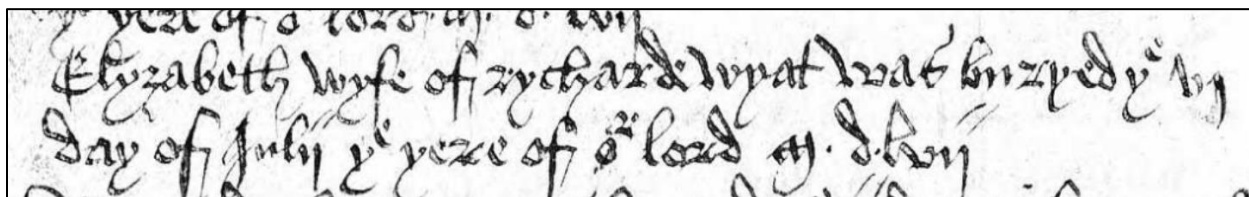 yͤ yere of oͬ lord · m · d · lvii
Elyzabeth wyfe of rycharde wyat was buryed yͤ vj
day of Julii yͤ yere of oͬ lord m · d · lvii